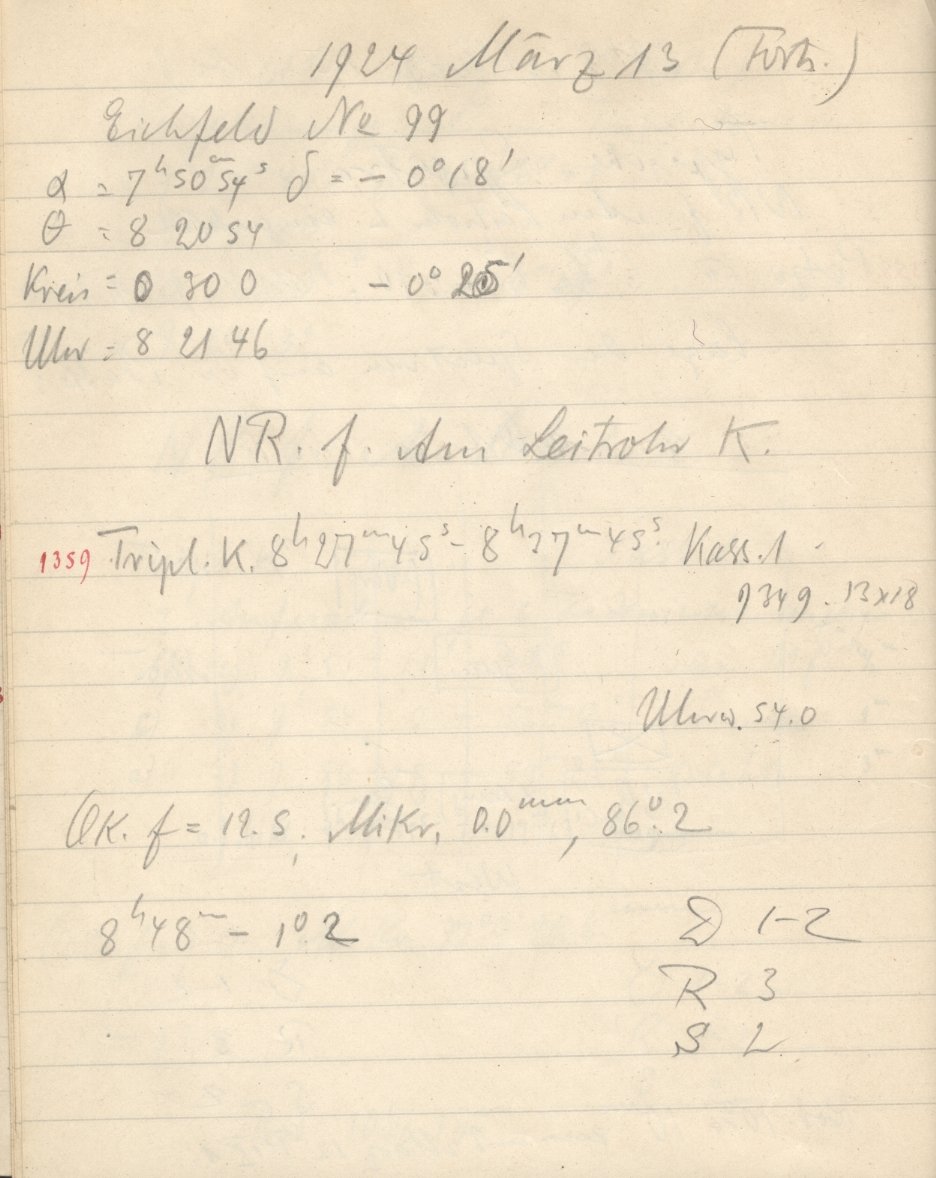 1924 März 13 (Forts.)
Eichfeld No 99
α = 7ʰ50ᵐ54ˢ δ = − 0°18'
θ = 8 20 54
Kreis = 0 30 0 − 0° 25'
Uhr = 8 21 46
NR. f. Am Leitrohr K.
1359 Tripl. K. 8ʰ27ᵐ45ˢ − 8ʰ37ᵐ45ˢ. Kass. 1
9349. 13x18
Uhrw. 54.0
OK. f = 12.5, Mikr. 0.0ᵐᵐ, 86°.2
8ʰ48ᵐ − 1°.2 D 1−2
R 3
S 2